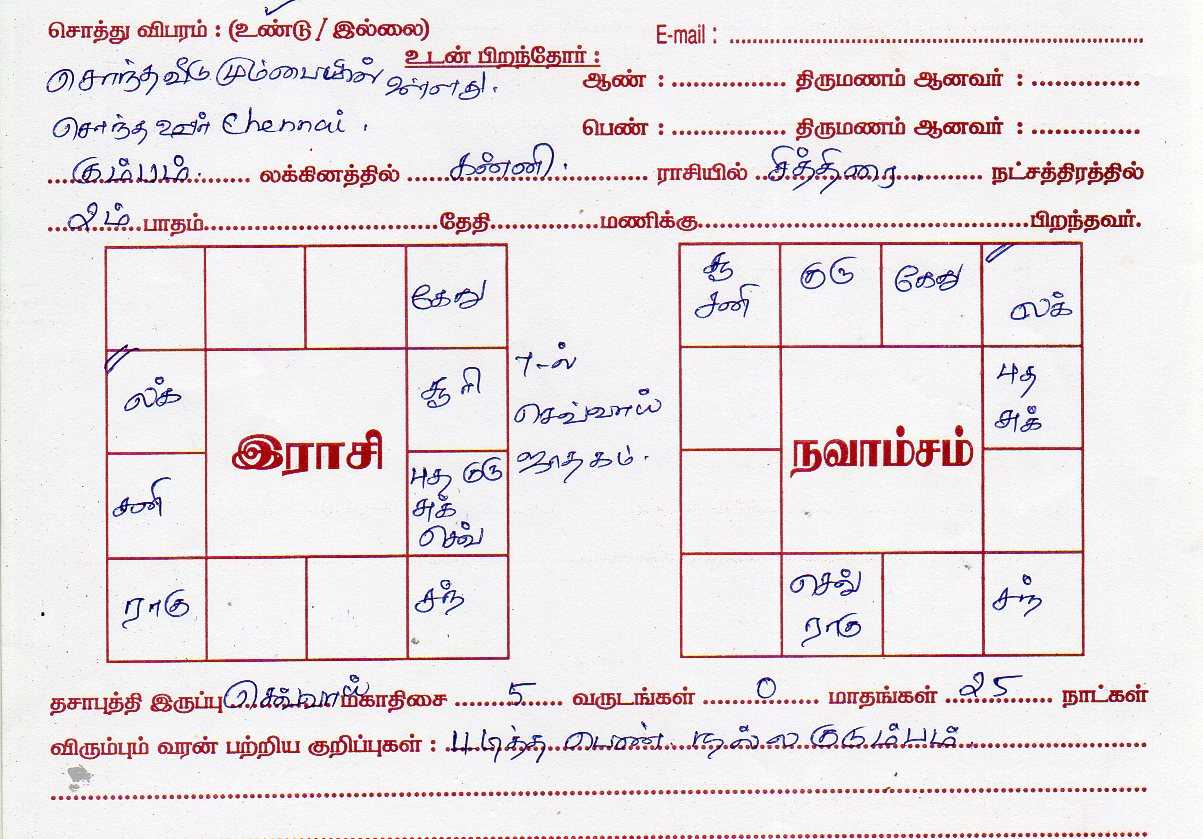 சொத்து விபரம் : (உண்டு / இல்லை)
E-mail : ........................................
உடன் பிறந்தோர் :
சொந்த வீடு மும்பையில் உள்ளது.
ஆண் : ............... திருமணம் ஆனவர் : ..............
சொந்த ஊர் Chennai.
பெண் : ............... திருமணம் ஆனவர் : ..............
கும்பம். லக்கினத்தில் கன்னி. ராசியில் சித்திரை. நட்சத்திரத்தில்
2ம் பாதம்..............தேதி...............மணிக்கு..............பிறந்தவர்.
கேது
லக்
சூரி
இராசி
சனி
புத குரு
சுக்
செவ்
ராகு
சந்
7-ல்
செவ்வாய்
ஜாதகம்.
சூ
சனி
குரு
கேது
லக்
புத
சுக்
நவாம்சம்
செவ்
ராகு
சந்
தசாபுத்தி இருப்பு செவ்வாய் மகாதிசை 5 வருடங்கள் 0 மாதங்கள் 25 நாட்கள்
விரும்பும் வரன் பற்றிய குறிப்புகள் : படித்த பெண் நல்ல குடும்பம்.